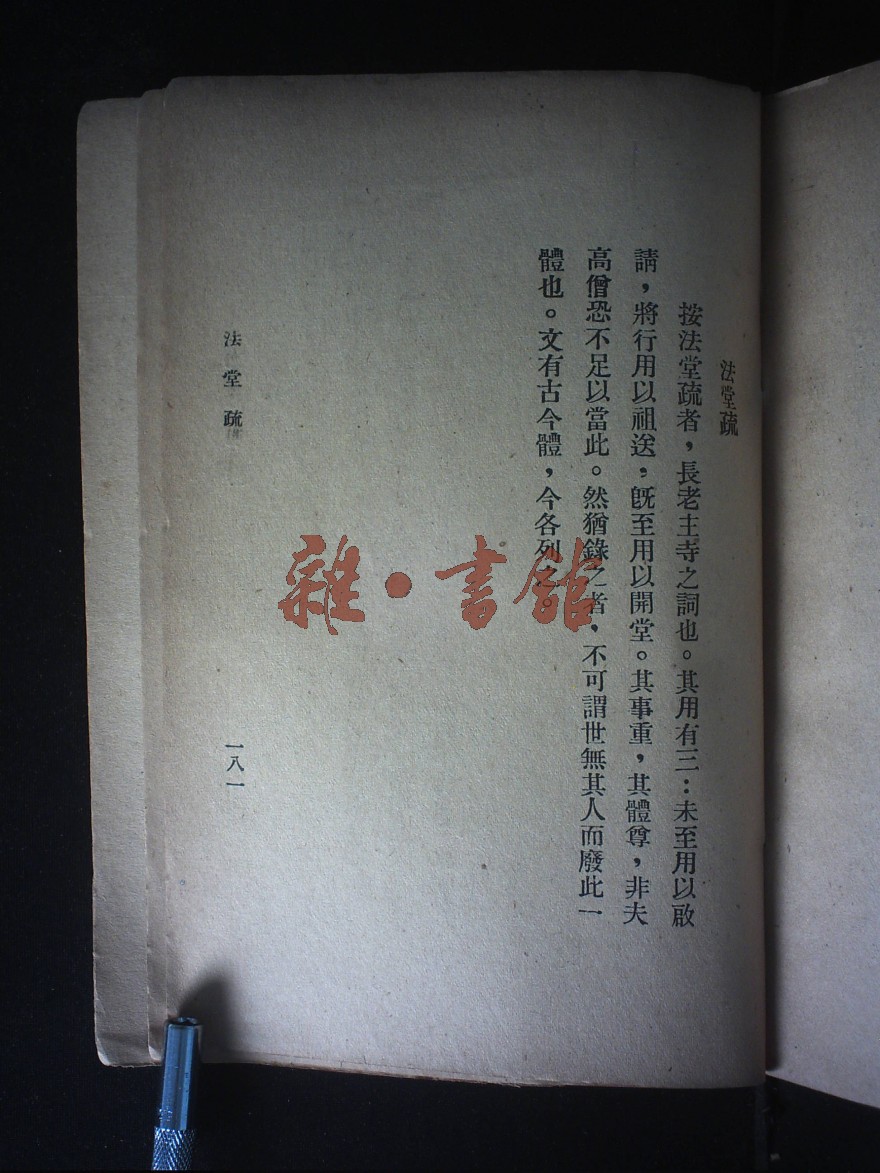 法堂疏
按法堂疏者，長老主寺之詞也。其用有三：未至用以啟
請，將行用以祖送，既至用以開堂。其事重，其體尊，非夫
高僧恐不足以當此。然猶錄之者，不可謂世無其人而廢此一
體也。文有古今體，今各列之。
法堂疏
一八一
雜·書館